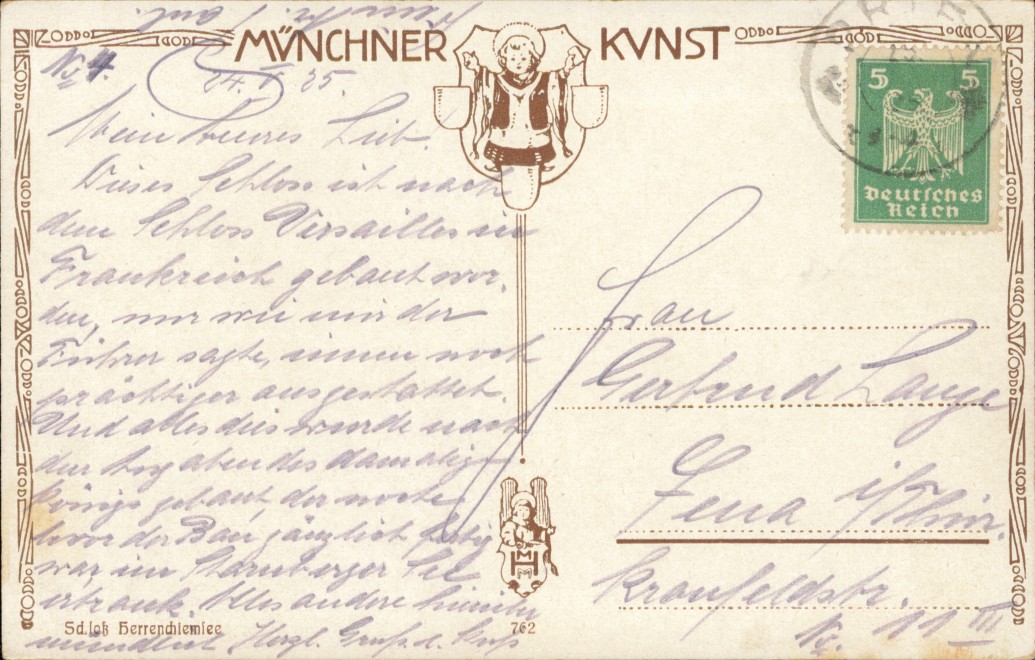 MÜNCHNER KUNST
No 4.
24. V. 25.
Mein teures Lieb.
Dieses Schloss ist nach
dem Schloss Versailles in
Frankreich gebaut wor-
den, nur wie mir der
Führer sagte, innen noch
prächtiger ausgestattet.
Und alles dies wurde nach
den Angaben des damalig.
Königs gebaut der noch
bevor der Bau gänzlich fertig
war im Starnberger See
ertrank. Alles andere hierüber
mündlich Herzl. Gruß u. Kuß
Schloß Herrenchiemsee
762
5 5
Deutsches
Reich
Frau
Gertrud Lange
Jena i/Thür.
Kronfeldstr.
No. 11 III